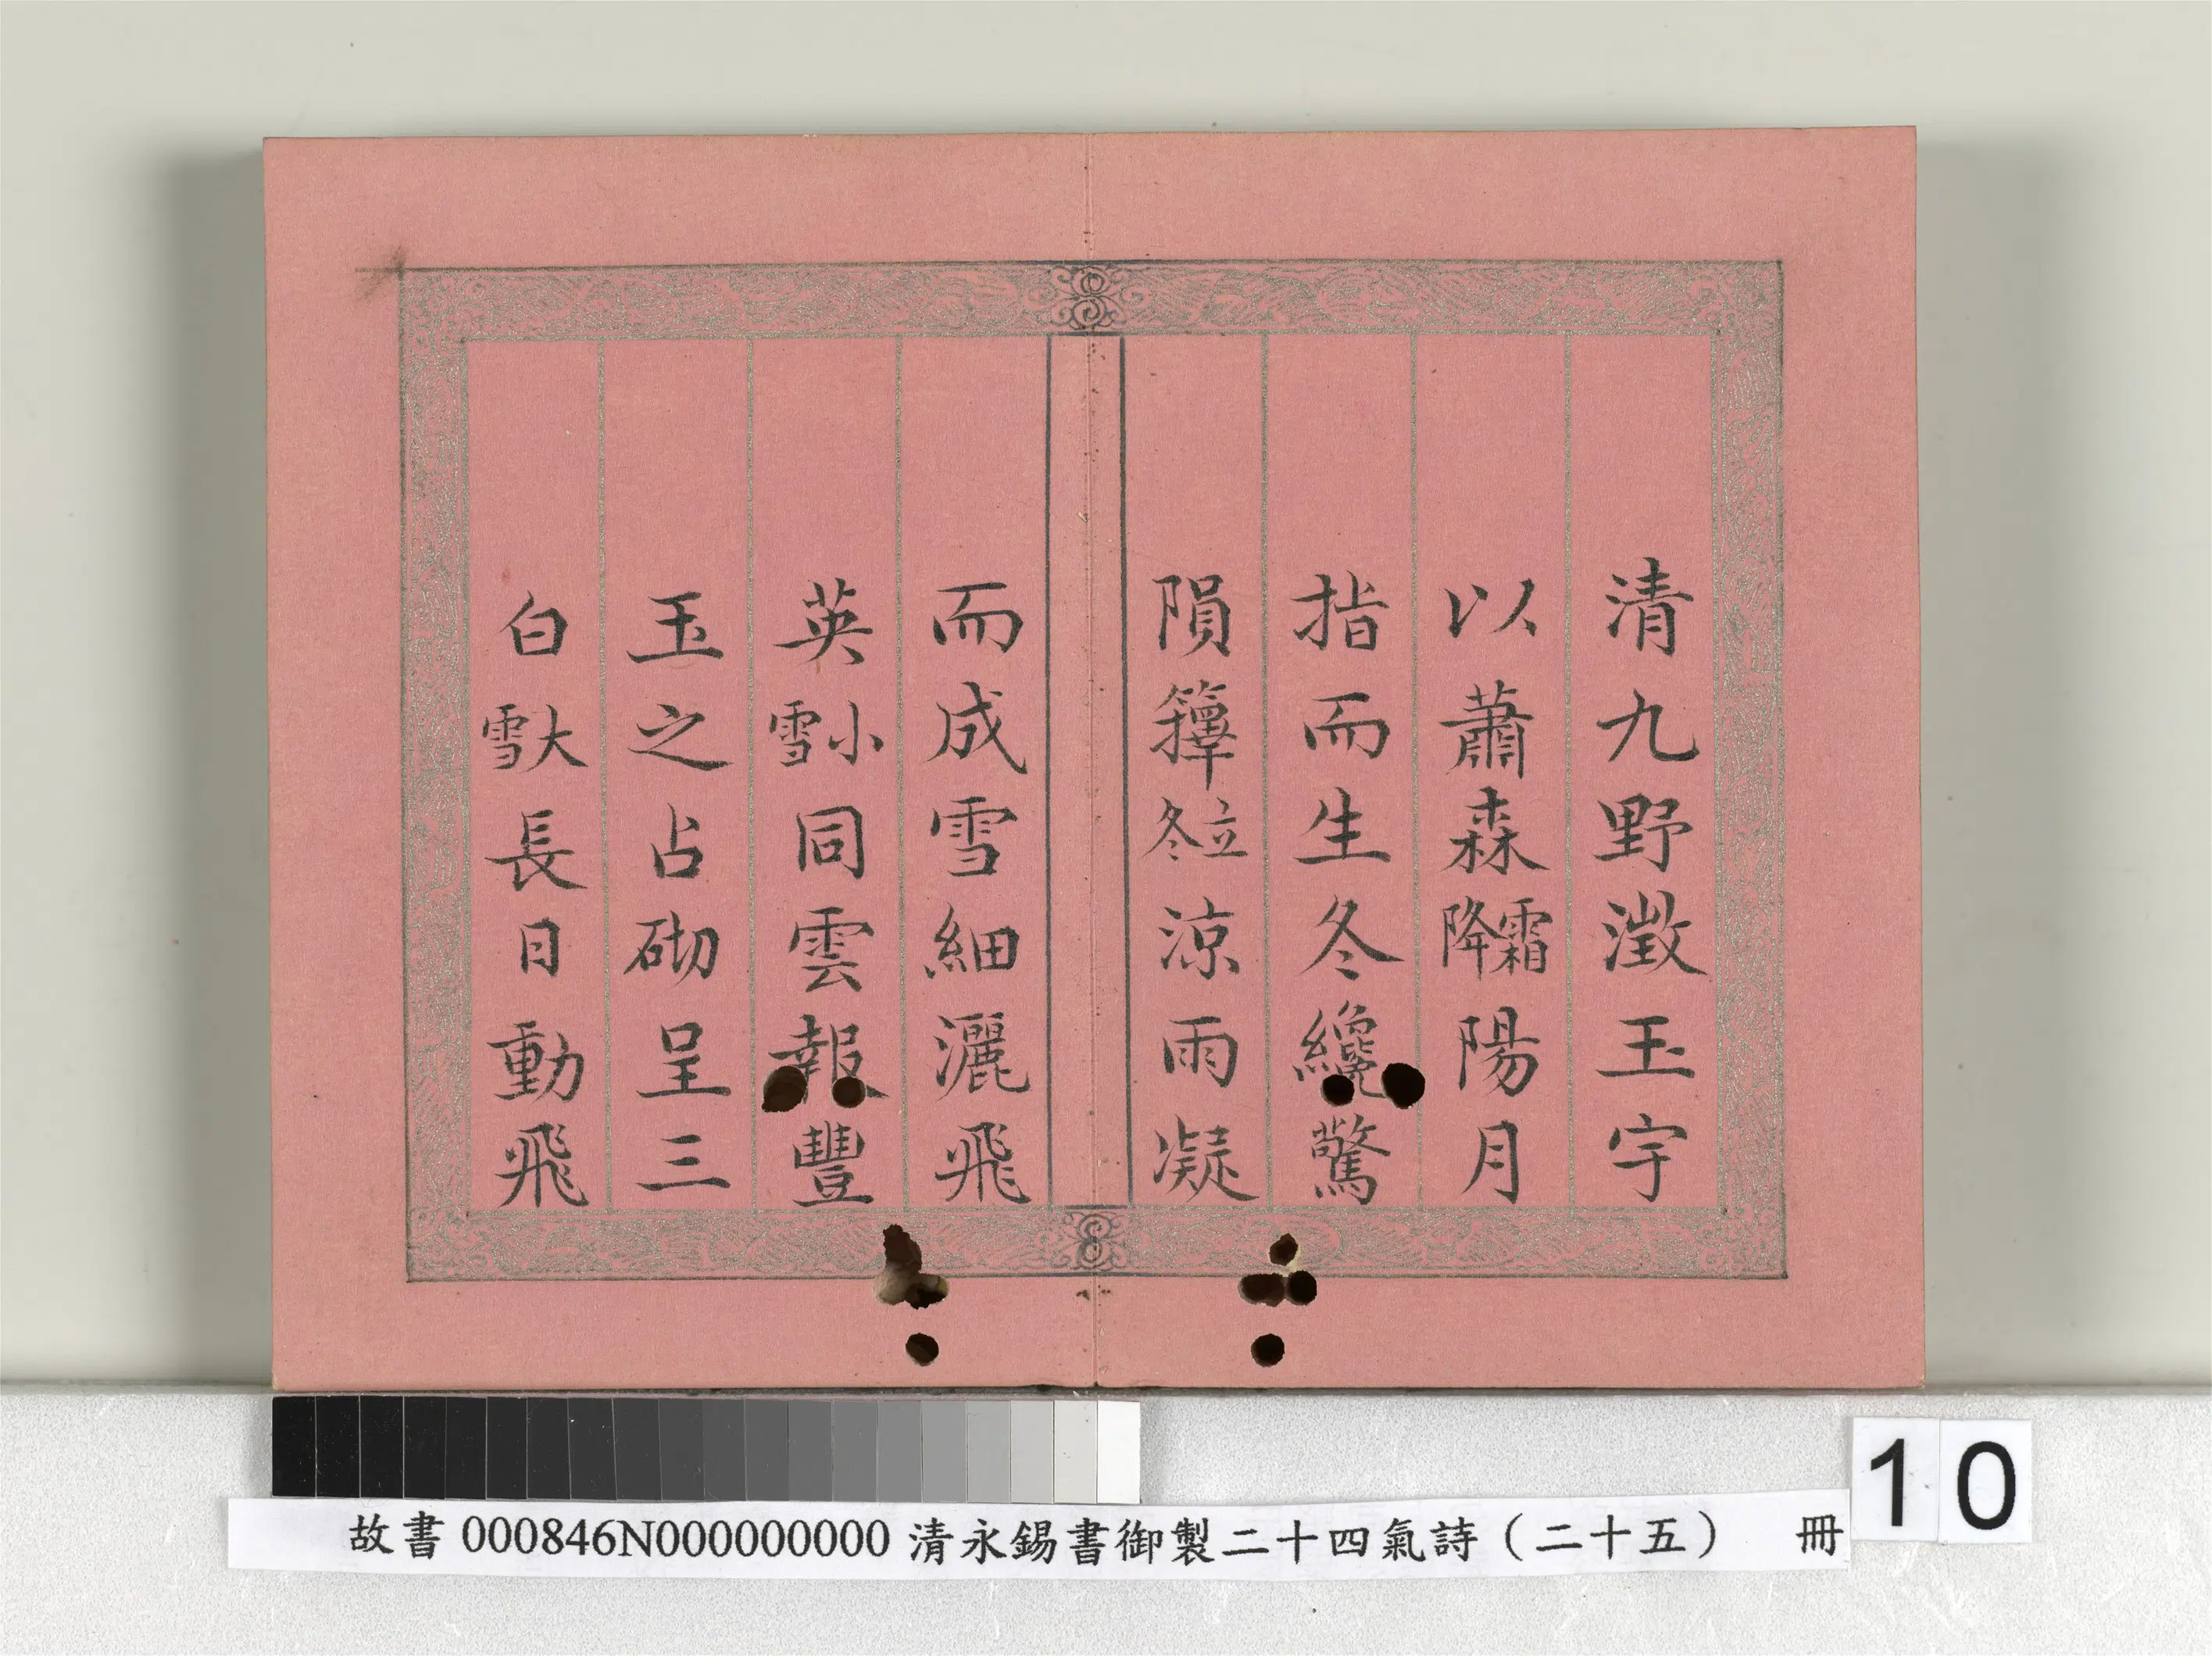 清九野澂玉宇
以蕭森霜降陽月
指而生冬纔驚
隕籜立冬涼雨凝
而成雪細灑飛
英小雪同雲報豐
玉之占砌呈三
白大雪長日動飛
故書 000846N000000000 清永錫書御製二十四氣詩（二十五） 冊
10